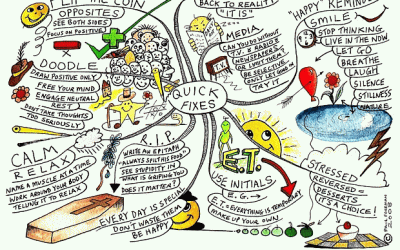 FLIP THE COIN
OPPOSITES
SEE BOTH SIDES
FOCUS ON POSITIVE
BACK TO REALITY
"IT IS"
MEDIA
CAN YOU DO WITHOUT
T.V. & RADIOS
NEWSPAPERS
OR LIMIT THEM
BE SELECTIVE
ONLY LET GOOD IN
TRY IT
T.V.
"HAPPY" REMINDERS
SMILE
STOP THINKING
LIVE IN THE NOW
LET GO
BREATHE
LAUGH
SILENCE
STILLNESS
NATURE
DOODLE
DRAW POSITIVE ONLY
FREE YOUR MIND
ENGAGE NEUTRAL
REST
DON'T TAKE THOUGHTS
TOO SERIOUSLY
QUICK
FIXES
CALM
RELAX
NAME A MUSCLE AT A TIME
WORK AROUND YOUR BODY
TELLING IT TO RELAX
R.I.P.
WRITE AN EPITAPH
"ALWAYS SPILT HIS FOOD"
SEE STUPIDITY IN
WHAT IS GRIPING YOU
DOES IT MATTER?
EVERY DAY IS SPECIAL
DON'T WASTE THEM
BE HAPPY
E.T.
USE INITIALS
E.G.
E.T. = EVERYTHING IS TEMPORARY
MAKE UP YOUR OWN
STRESSED
REVERSED =
DESSERTS
IT'S A CHOICE!